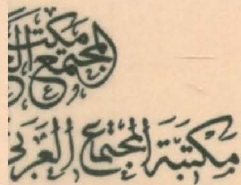 مكتبة
المجتمع
مكتبة المجتمع العربي